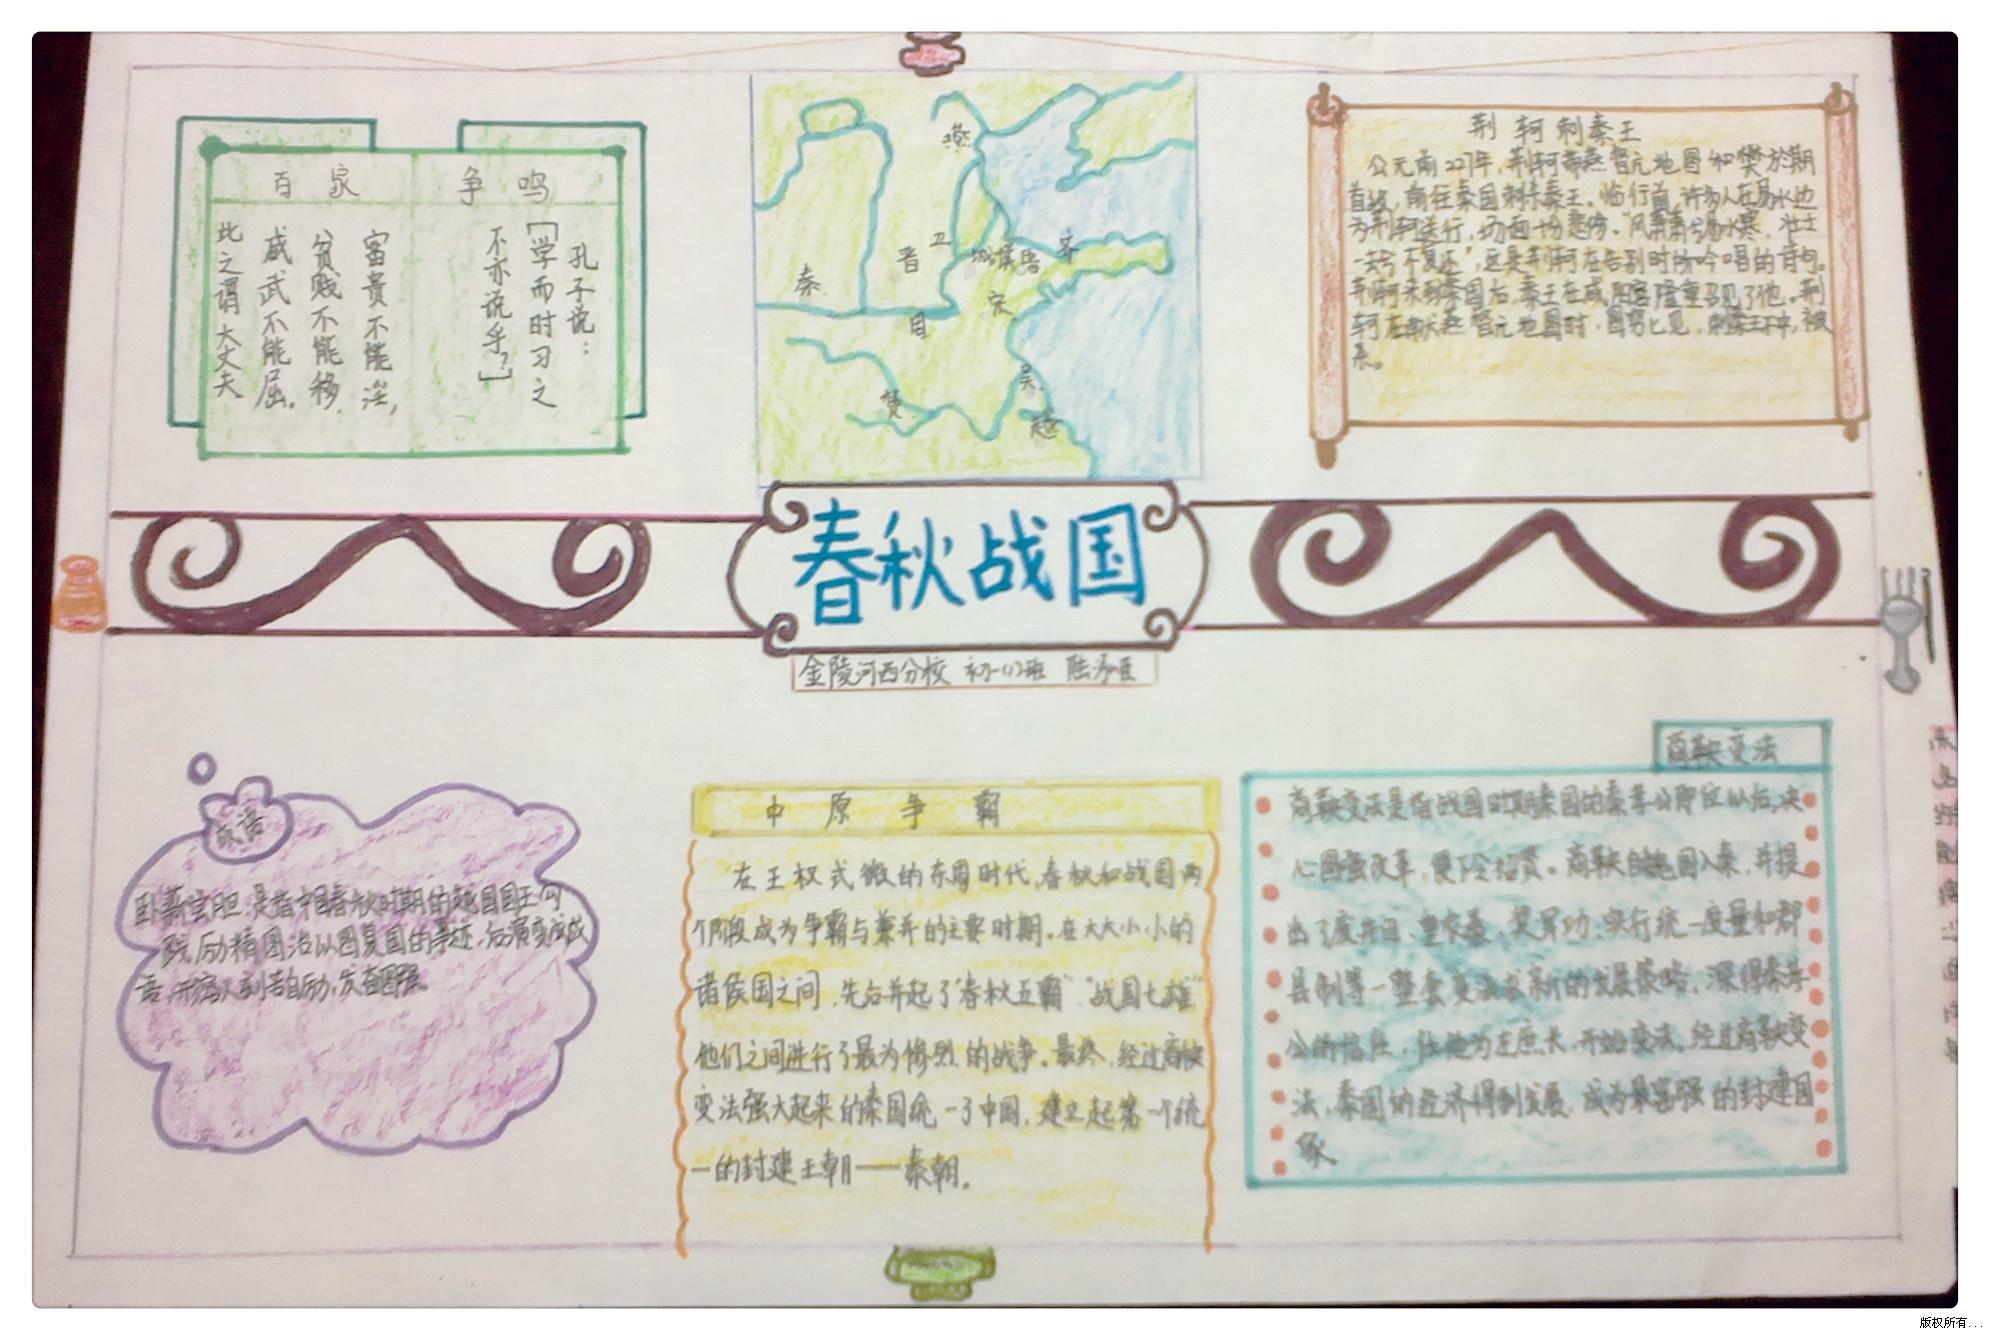 百家争鸣
孔子说：
「学而时习之
不亦说乎？」
富贵不能淫，
贫贱不能移，
威武不能屈。
此之谓大丈夫
燕
晋
卫
齐
秦
宋
楚
吴
越
荆轲刺秦王
公元前227年，荆轲带燕督亢地图和樊於期
首级，前往秦国刺杀秦王。临行前，许多人在易水边
为荆轲送行，场面十分悲伤。“风萧萧兮易水寒，壮士
一去兮不复还”，这是荆轲在告别时所吟唱的诗句。
荆轲来到秦国后，秦王在咸阳宫隆重召见了他。荆
轲在献燕督亢地图时，图穷匕见，刺秦王不中，被
杀。
春秋战国
金陵河西分校 初一(1)班 陆
成语
卧薪尝胆，是指中国春秋时期的越国国王勾
践励精图治以图复国的事迹，后演变成成
语，形容人刻苦自励，发奋图强。
中原争霸
在王权式微的东周时代，春秋和战国两
个阶段成为争霸与兼并的主要时期。在大大小小的
诸侯国之间，先后并起了“春秋五霸”“战国七雄”
他们之间进行了最为惨烈的战争。最终，经过商鞅
变法强大起来的秦国统一了中国，建立起第一个统
一的封建王朝——秦朝。
商鞅变法
商鞅变法是指战国时期秦国的秦孝公即位以后，决
心图强改革，便下令招贤。商鞅自魏国入秦，并提
出了废井田、重农桑、奖军功、实行统一度量和郡
县制等一整套变法求新的发展策略，深得秦孝
公的信任，任他为左庶长，开始变法。经过商鞅变
法，秦国的经济得到发展，成为最富强的封建国
家
版权所有...